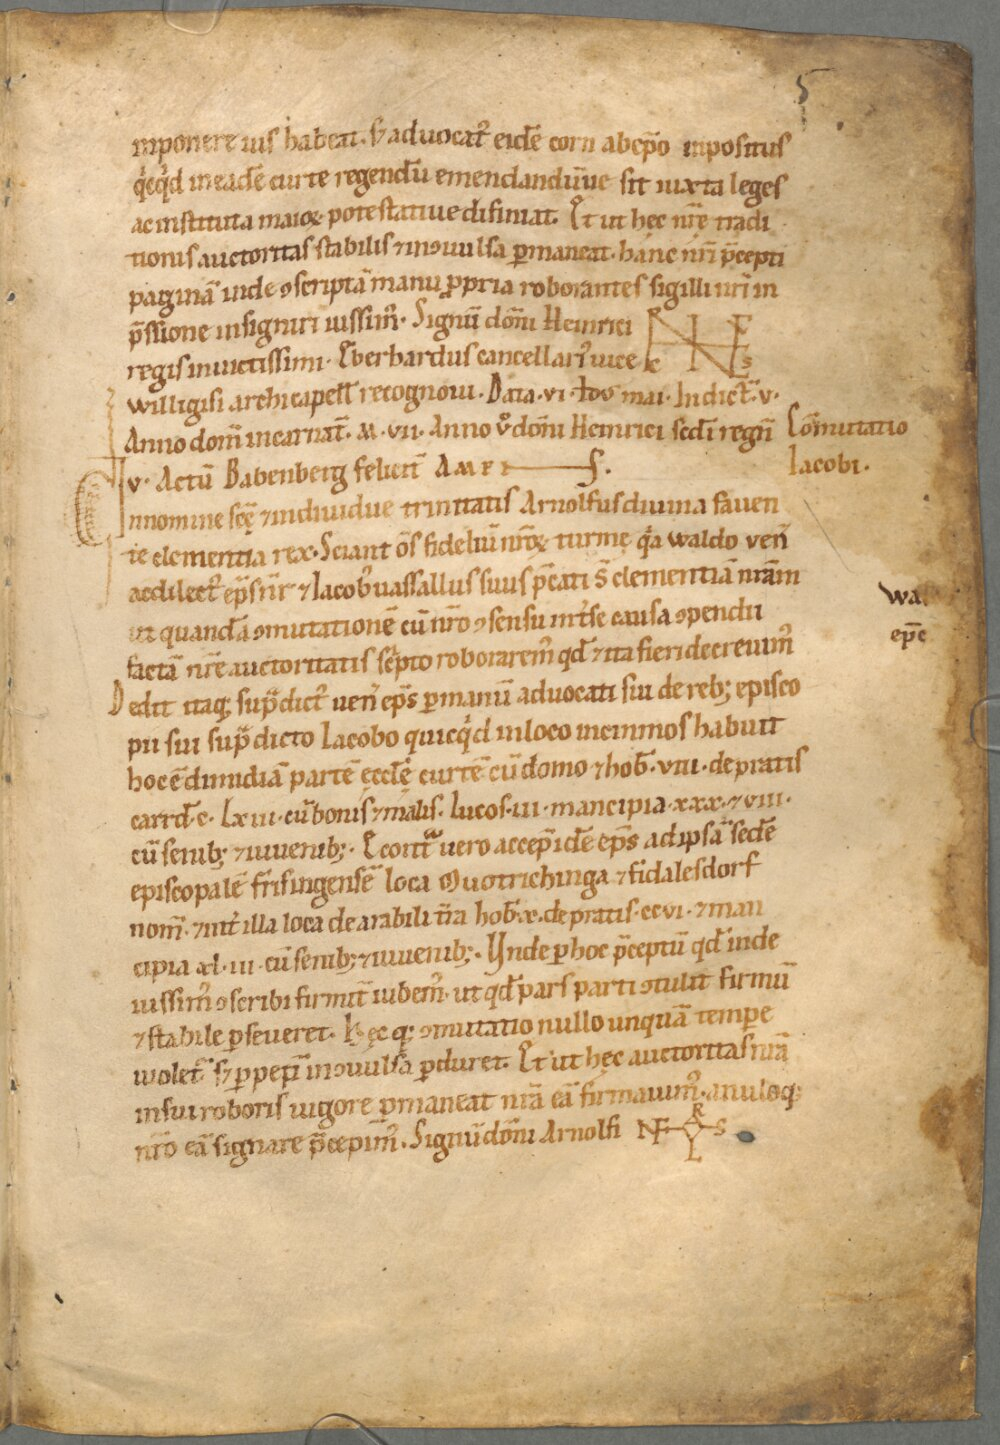 5
inponere ius habeat. s; advocat᷒ eidē corti ab ep̄o inpositus
q̇cq̇d in eadē curte regendū emendandūue sit iuxta leges
ac instituta maioꝝ potestatiue difiniat. Et ut hęc nr̄e tradi
tionis auctoritas stabilis ⁊ inꝯuulsa ꝑmaneat. hanc nr̄i p̄cepti
paginā inde ꝯscriptā manu ꝓpria roborantes sigilli nr̄i in
p̄ssione insigniri iussim᷒. Signū dom̄i Heinrici
regis inuictissimi. Eberhardus cancellari᷒ uice
willigisi archicapell̄ recognoui. Data. vi. id᷒ mai. Indict̄. v.
Anno dom̄ incarnat̄. M. vii. Anno v̊ dom̄i Heinrici sc̄di regn̄
v. Actū Babenberg felicit̄ AMEN.
Commutatio
Iacobi.
In nomine sc̄ę ⁊ indiuidue trinitatis Arnolfus diuina fauen
te clementia rex. Sciant om̄s fideliū nr̄oꝝ turme q̇a waldo ven̄
ac dilect᷒ ep̄s nr̄ ⁊ Iacob᷒ vassallus suus p̄cati s̄ clementiā nr̄am
ut quandā ꝯmutationē cū nr̄o ꝯsensu int̄ se causa ꝯpendii
wal
ep̄c
factā nr̄e auctoritatis sc̄pto roborarem᷒ qd̄ ⁊ ita fieri decreuim᷒
Dedit itaq; sup̄dict᷒ ven̄ ep̄s ꝑ manū advocati sui de reb; episco
pii sui sup̄dicto Iacobo quicq̇d in loco incinmos habuit
hoc ē dimidiā partē eccl̄ę curtē cū domo ⁊ hob̄. viii. de pratis
carrd̄.e. lxiii. cū bonis ⁊ malis. lucos. iii. mancipia. xxx. ⁊ viii.
cū senib; ⁊ iuvenib;. Econtͣ uero accep̄ idē ep̄s ad ipsā sedē
episcopalē frisingensē loca Quotrichinga ⁊ fidalesdorf
nom̄. ⁊ int̄ illa loca de arabili t̄ra hob̄. x. de pratis. ccvi. ⁊ man
cipia xl. iii. cū senib; ⁊ iuvenib;. Unde ꝑ hoc p̄ceptū qd̄ inde
iussim᷒ ꝯscribi firmit̄ iubem᷒. ut qd̄ pars parti ꝯtulit firmū
⁊ stabile ꝑseveret. Hęcq; ꝯmutatio nullo unquā tempere
uiolet᷒ s; ꝑpetī inꝯuulsa ꝑduret. Et ut hęc auctoritas nr̄a
in sui roboris uigore ꝑmaneat nr̄a eā firmauim᷒. anuloq;
nr̄o eā signare p̄cepim᷒. Signū dom̄i Arnolfi